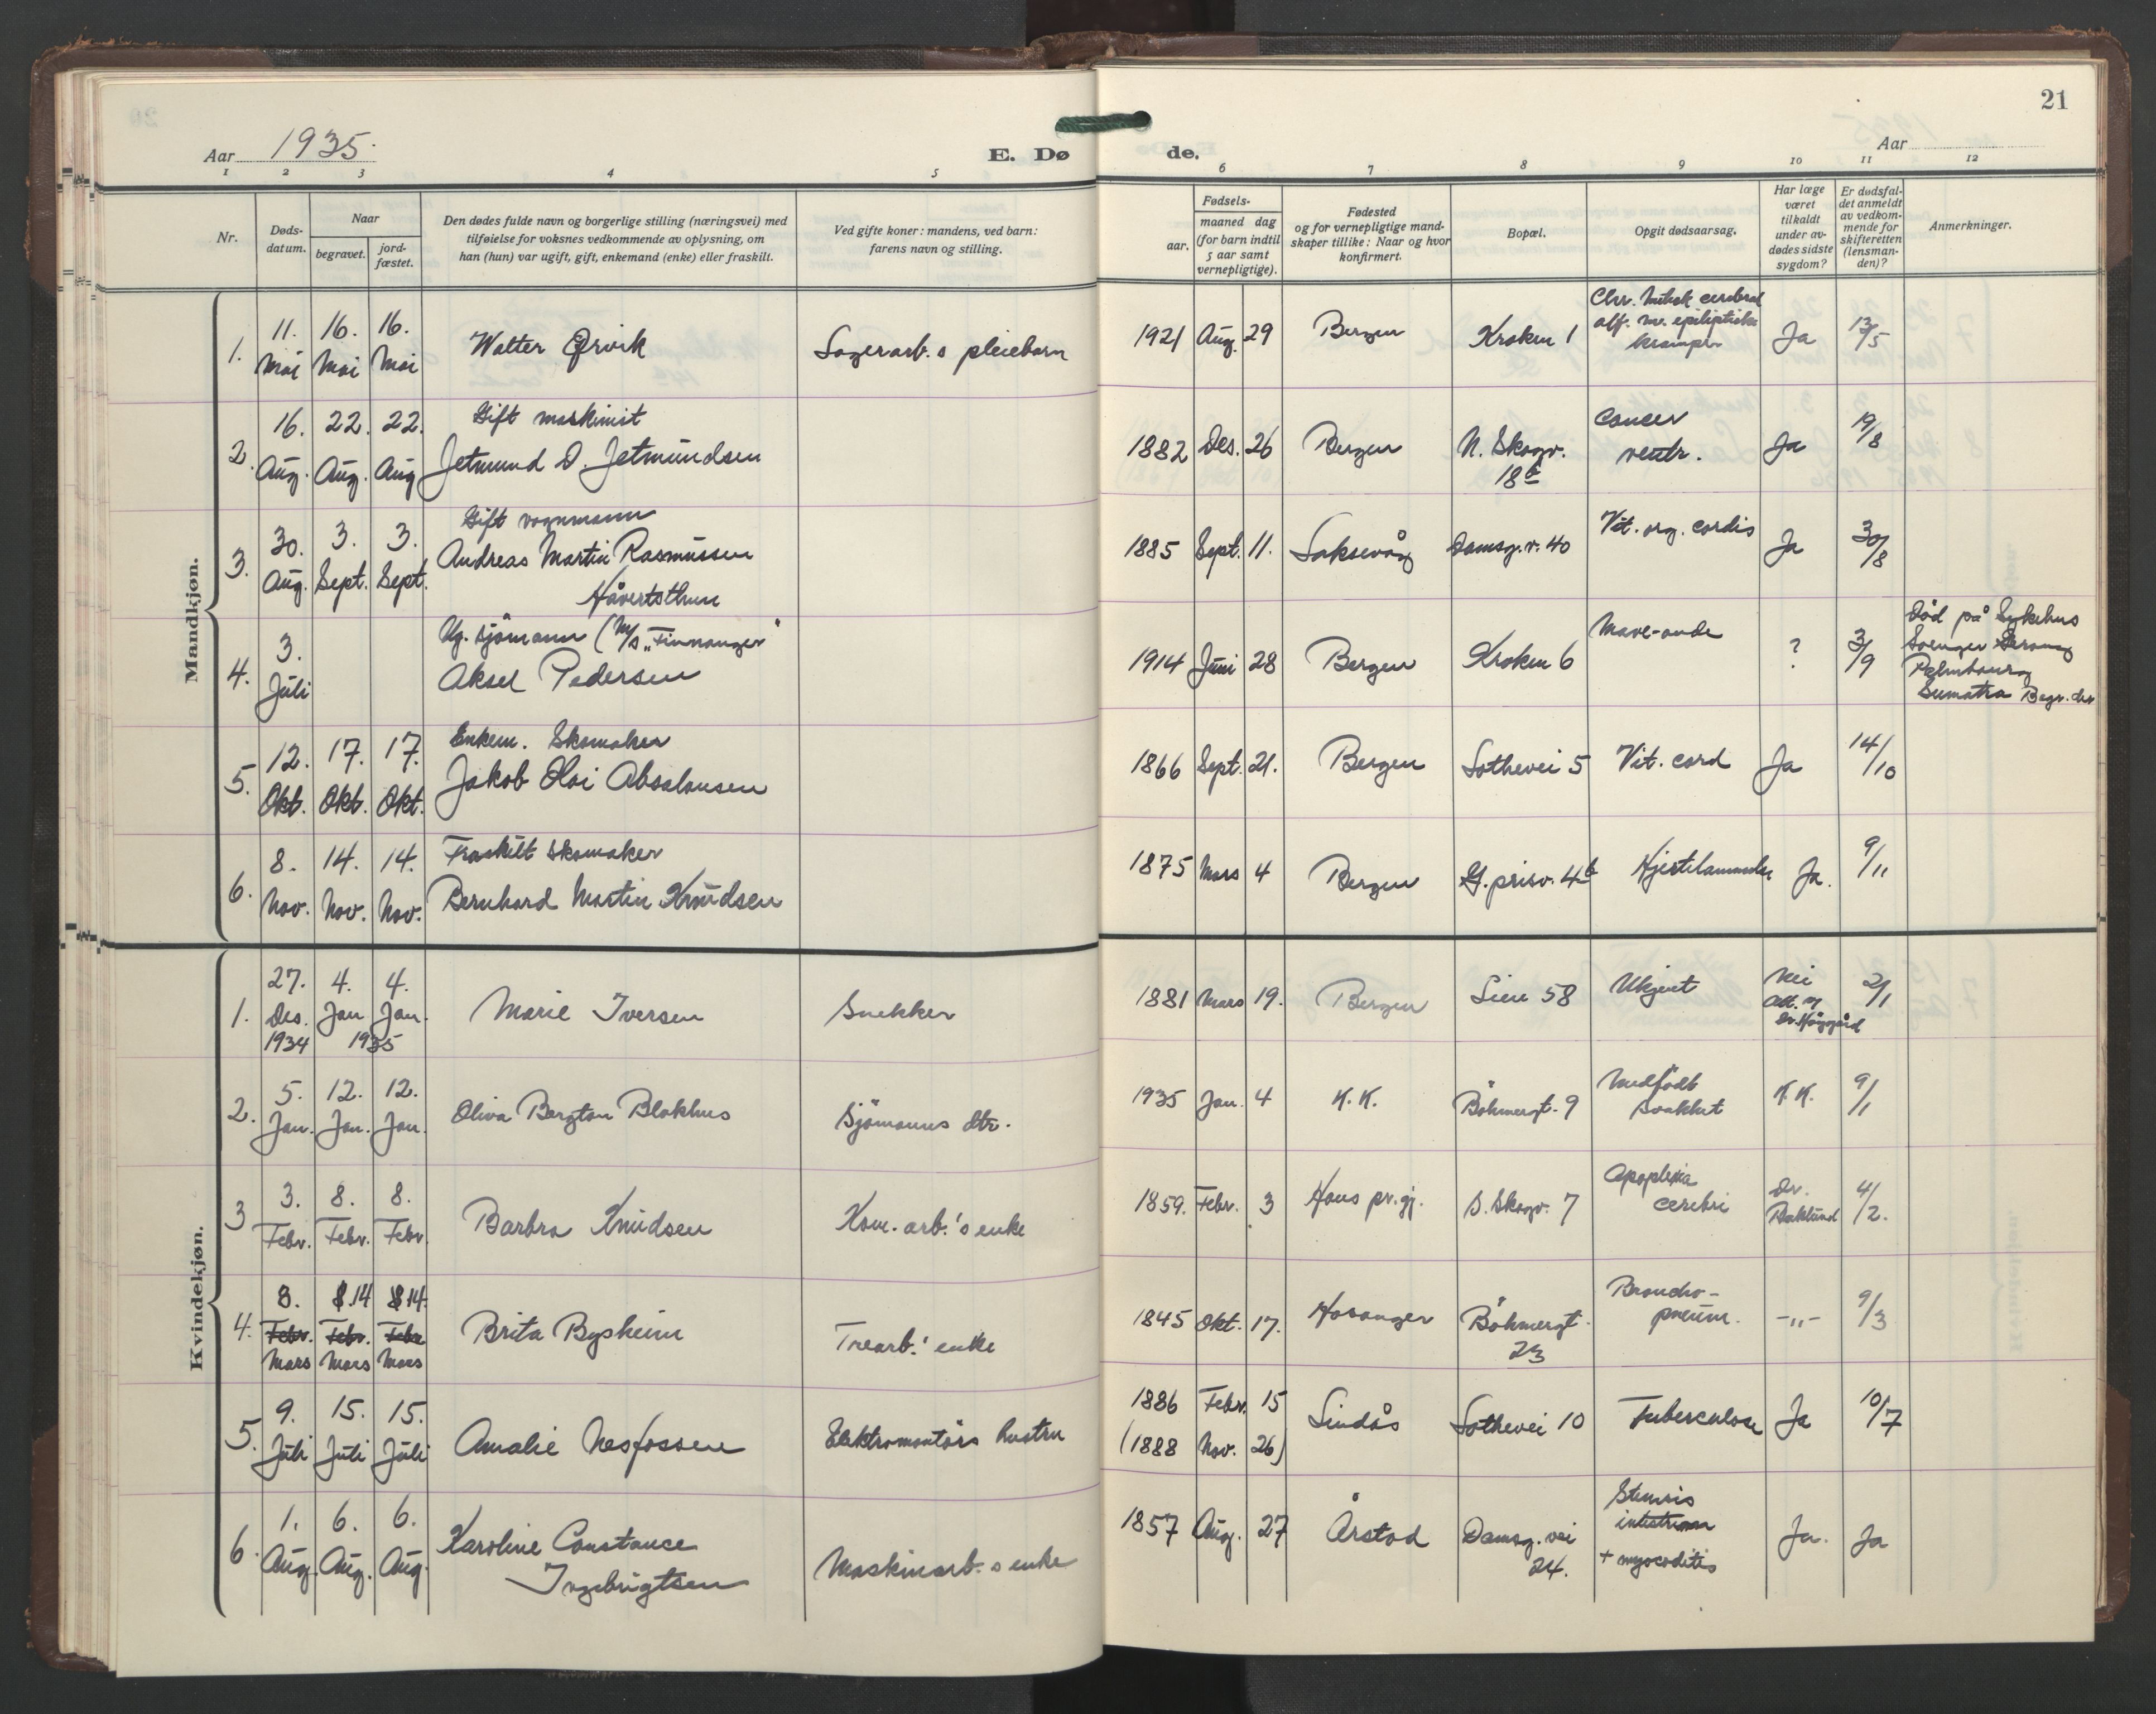 21
Aar 1935.
E. Dø
de.
Aar
1 2 3 4 5 6 7 8 9 10 11 12
Nr.
Døds-
datum.
Naar
begravet.
jord-
fæstet.
Den dødes fulde navn og borgerlige stilling (næringsvei) med
tilføielse for voksnes vedkommende av oplysning, om
han (hun) var ugift, gift, enkemand (enke) eller fraskilt.
Ved gifte koner: mandens, ved barn:
farens navn og stilling.
Fødsels-
aar.
maaned dag
(for barn indtil
5 aar samt
vernepligtige).
Fødested
og for vernepligtige mand-
skaper tillike: Naar og hvor
konfirmert.
Bopæl.
Opgit dødsaarsag.
Har læge
været
tilkaldt
under av-
dødes sidste
sygdom?
Er dødsfal-
det anmeldt
av vedkom-
mende for
skifteretten
(lensman-
den)?
Anmerkninger.
Mandkjøn.
1. 11. Mai 16. Mai 16. Mai
Walter Ørvik
Sagerarb.s pleiebarn
1921 Aug. 29 Bergen Kroken 1
Ja 13/5
2. 16. Aug. 22. Aug. 22. Aug
Gift maskinist
Jetmund D. Jetmundsen
1882 Des. 26 Bergen N. Skogv.
18b
Cancer
ventr.
Ja 19/8
3. 30. Aug. 3. Sept. 3. Sept.
Gift vognmann
Andreas Martin Rasmussen
Håvertsthun
1885 Sept. 11. Laksevåg Damsg.v. 40
Vit. org. cordis
Ja 30/8
4. 3. Juli
Ug. sjömann (M/S "Finnanger"
Aksel Pedersen
1914 Juni 28 Bergen Kroken 6
Mave-onde
? 3/9
Död på Sykehus
Soenger Gerong
Palembang
Sumatra Begr. der
5. 12. Okt. 17. Okt. 17. Okt.
Enkem. Skomaker
Jakob Olai Absalonsen
1866 Sept. 21. Bergen Lothevei 5 Vit. cord Ja 14/10
6. 8. Nov. 14. Nov. 14. Nov.
Fraskilt skomaker
Bernhard Martin Knudsen
1875 Mars 4 Bergen G. prisv. 4b Hjertelammelse Ja. 9/11
Kvindekjøn.
1. 27. Des. 1934 4. Jan 4. Jan. 1935
Marie Iversen
Snekker
1881 Mars 19. Bergen Lien 58 Ukjent
Nei
Att. af
Dr. Haggård
2/1
2. 5. Jan. 12. Jan. 12. Jan.
Oliva Bergton Blokhus
Sjömanns dtr.
1935 Jan. 4 K.K. Böhmergt. 9
Medfödt
svakhet
K.K. 9/1
3 3. Febr. 8. Febr. 8. Febr.
Barbra Knudsen
Kom.arb.'s enke
1859. Febr. 3 Haus pr.gj. S. Skogv. 7
Apoplexia
cerebri
Dr.
Baklund
4/2.
4. 8. Febr. Mars 8.14 Febr. Mars 8.14. Febr Mars
Brita Bysheim
Trearb.' enke
1845 Okt. 17. Hosanger Böhmergt.
23
Broncho-
pneum.
-"- 9/3
5. 9. Juli 15. Juli 15. Juli
Amalie Nesfossen
Elektromontörs hustru
1886 Febr. 15
(1888 Nov. 26)
Lindås Lothevei 10 Tuberculose Ja 10/7
6. 1. Aug. 6. Aug. 6. Aug.
Karoline Constance
Ingebrigtsen
Maskinarb.s enke
1857 Aug. 27 Årstad Damsg. vei
24.
+ myocoditis
Ja. Ja